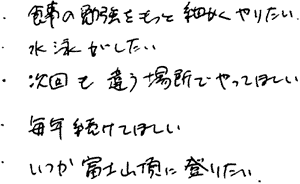 ・食事の勉強をもっと細かくやりたい.
・水泳がしたい
・次回も違う場所でやってほしい
・毎年続けてほしい
・いつか富士山頂に登りたい.